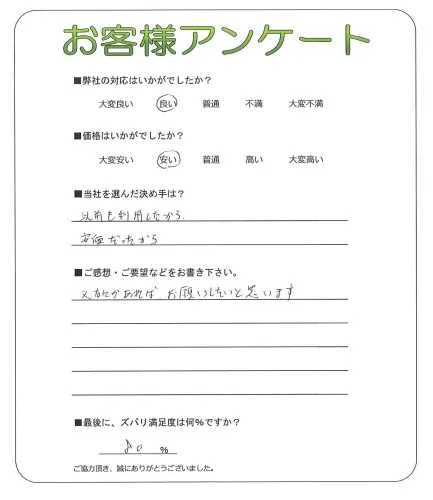 お客様アンケート
■弊社の対応はいかがでしたか？
大変良い 良い 普通 不満 大変不満
■価格はいかがでしたか？
大変安い 安い 普通 高い 大変高い
■当社を選んだ決め手は？
以前も利用したから.
安価だったから
■ご感想・ご要望などをお書き下さい。
又何かあれば、お願いしたいと思います
■最後に、ズバリ満足度は何%ですか？
80 %
ご協力頂き、誠にありがとうございました。